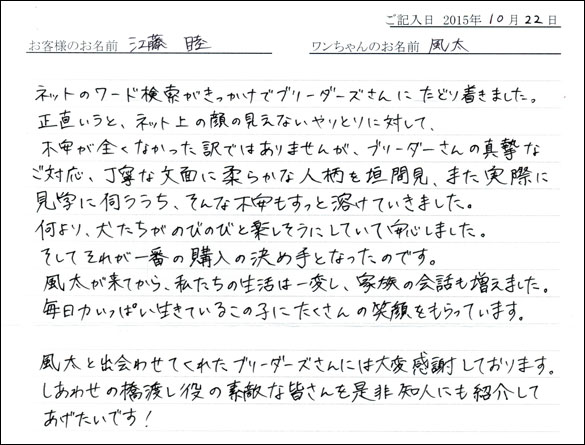 ご記入日 2015年10月22日
お客様のお名前 江藤 睦 ワンちゃんのお名前 風太
ネットのワード検索がきっかけでブリーダーズさんにたどり着きました。
正直いうと、ネット上の顔の見えないやりとりに対して、
不安が全くなかった訳ではありませんが、ブリーダーさんの真摯な
ご対応、丁寧な文面に柔らかな人柄を垣間見、また実際に
見学に伺ううち、そんな不安もすっと溶けていきました。
何より、犬たちがのびのびと楽しそうにしていて安心しました。
そしてそれが一番の購入の決め手となったのです。
風太が来てから、私たちの生活は一変し、家族の会話も増えました。
毎日力いっぱい生きているこの子にたくさんの笑顔をもらっています。
風太と出会わせてくれたブリーダーズさんには大変感謝しております。
しあわせの橋渡し役の素敵な皆さんを是非知人にも紹介して
あげたいです！